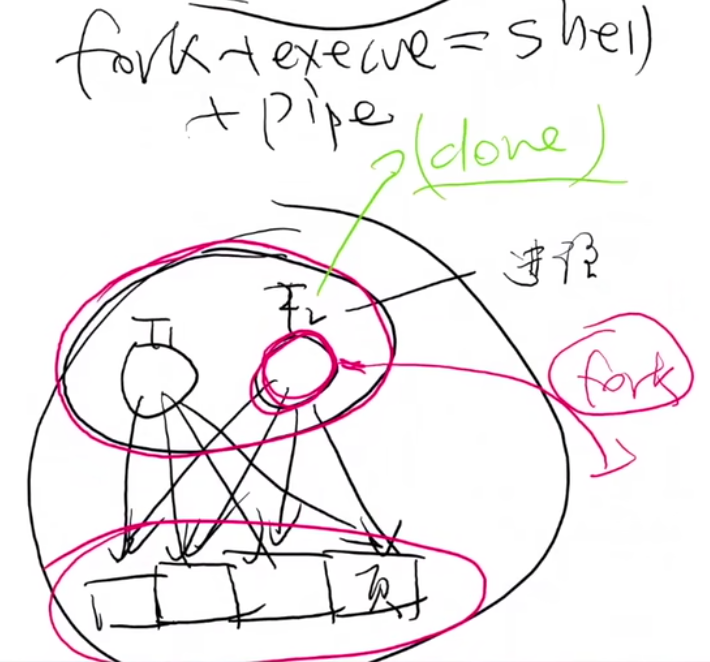 fork+execve=shell
+pipe
(done)
T1
T2
进程
fork
页